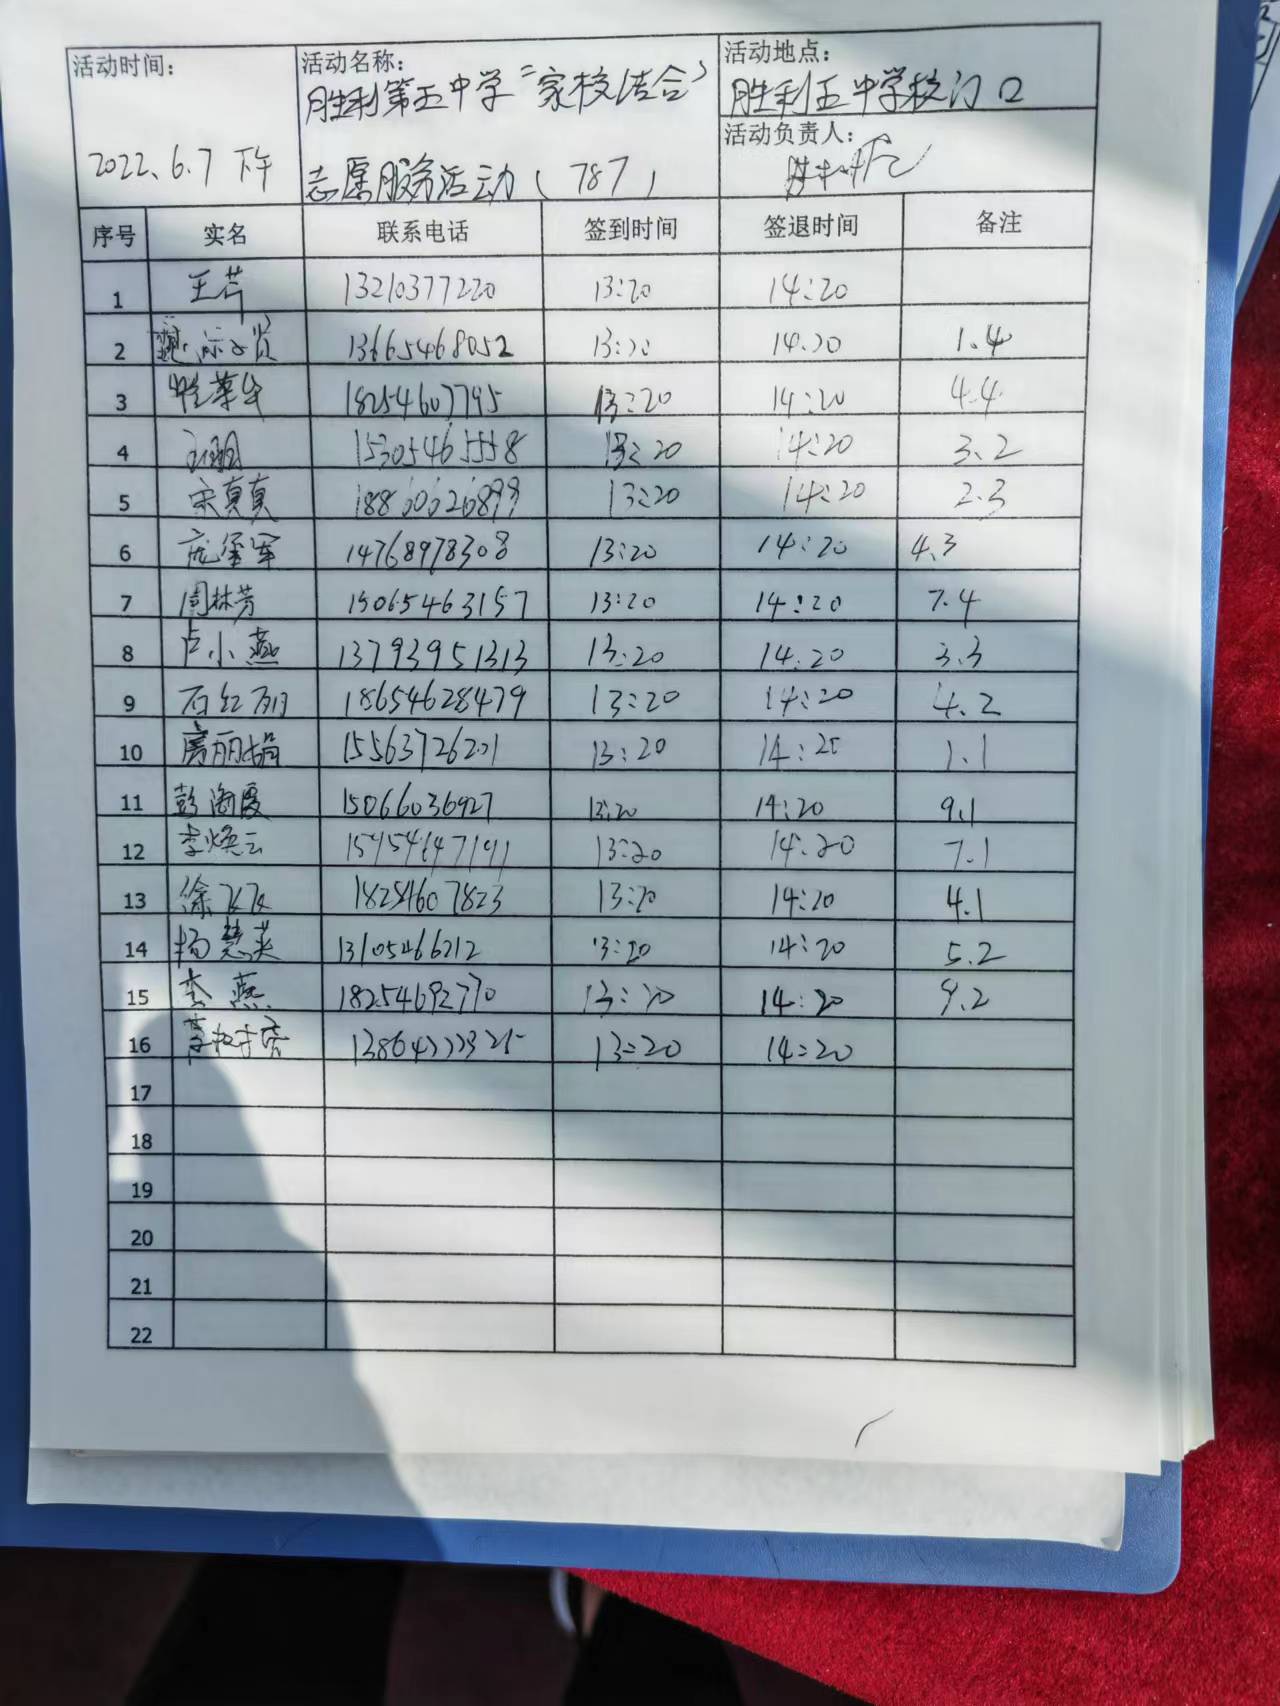 活动时间：
2022.6.7 下午
活动名称：
胜利第五中学“家校结合”
志愿服务活动（787）
活动地点：
胜利五中学校门口
活动负责人：
序号 实名 联系电话 签到时间 签退时间 备注
1 王芹 13210377220 13:20 14:20
2 13665468052 13:20 14:20 1.4
3 18254607795 13:20 14:20 4.4
4 15305465558 13:20 14:20 3.2
5 宋真真 18860626899 13:20 14:20 2.3
6 14768978308 13:20 14:20 4.3
7 周林芳 15065463157 13:20 14:20 7.4
8 卢小燕 13793951313 13:20 14:20 3.3
9 石红丽 18654628479 13:20 14:20 4.2
10 房丽娟 15563726201 13:20 14:20 1.1
11 彭海霞 15066036927 13:20 14:20 9.1
12 李焕云 15954647191 13:20 14:20 7.1
13 徐飞飞 18254607823 13:20 14:20 4.1
14 杨慧英 13105466212 13:20 14:20 5.2
15 李燕 18254692770 13:20 14:20 9.2
16 13:20 14:20
17
18
19
20
21
22